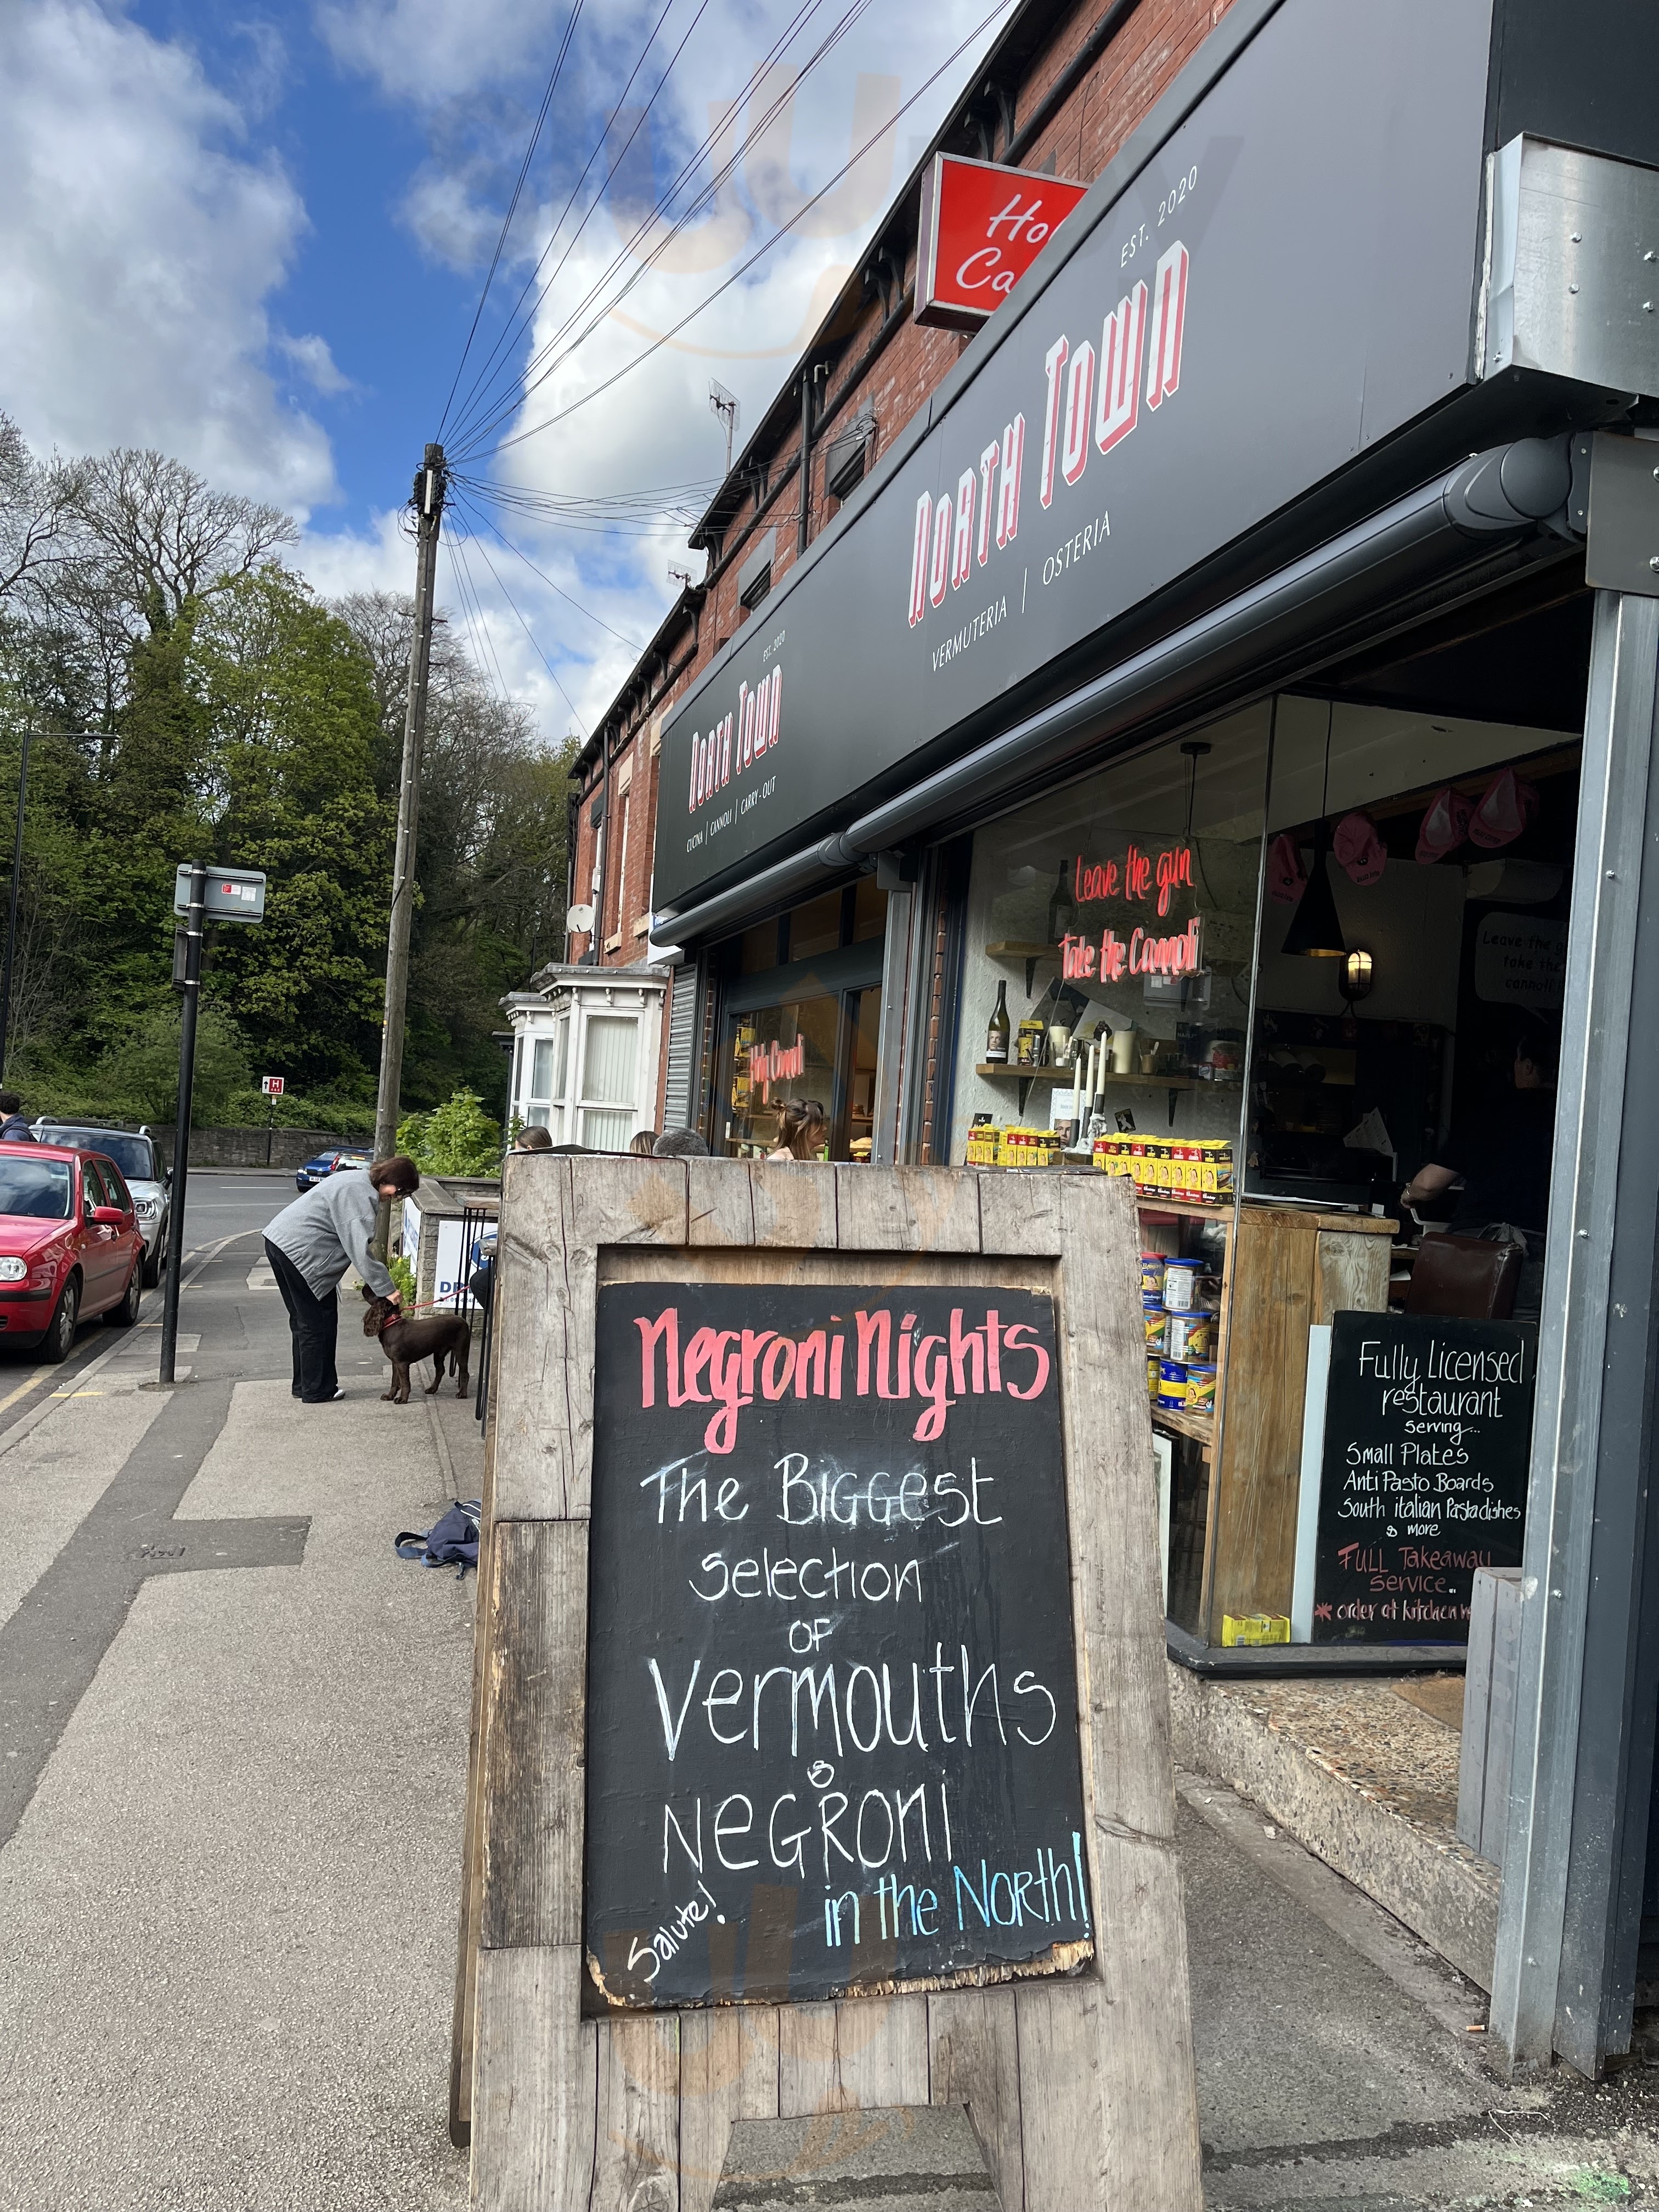 EST. 2020
NORTH TOWN
VERMUTERIA | OSTERIA
EST. 2020
NORTH TOWN
CUCINA | CANNOLI | CARRY-OUT
Leave the gun
take the Cannoli
Leave the
take the
cannoli
Holy Cannoli
H
Negroni Nights
The Biggest
Selection
OF
Vermouths
&
NEGRONI
in the North!
Salute!
Fully Licensed
restaurant
Serving...
Small Plates
Anti Pasto Boards
South italian Pasta dishes
& more
FULL Takeaway
Service..
* order at kitchen